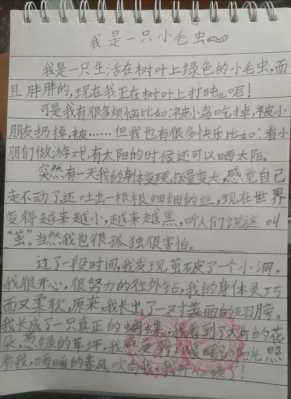 我是一只小毛虫
我是一只生活在树叶上绿色的小毛虫,而
且胖胖的,现在我正在树叶上打吨。嗯!
可是我有很多烦恼比如:被小鸟吃掉,被小
朋友扔掉,被……但我也有很多快乐比如:看小
朋们做游戏,有太阳的时候还可以晒太阳。
突然有一天我的身体变硬,越变大,感觉自己
走不动了还吐出一根根细细的丝,现在世界
变得越来越小,越来越黑,听人们说这叫
“茧”当然我也很孤独很害怕。
过了一段时间,我发现茧破了一个小洞。
我很开心,很努力的往外钻,我的身体灵巧
而又柔软,原来,我长出了一对美丽的翅膀。
我长成了一只真正的蝴蝶。我看到了大片的花
朵,葱绿的草坪,我 阳光照
亲我,暖暖的春风吹向我,我 了!